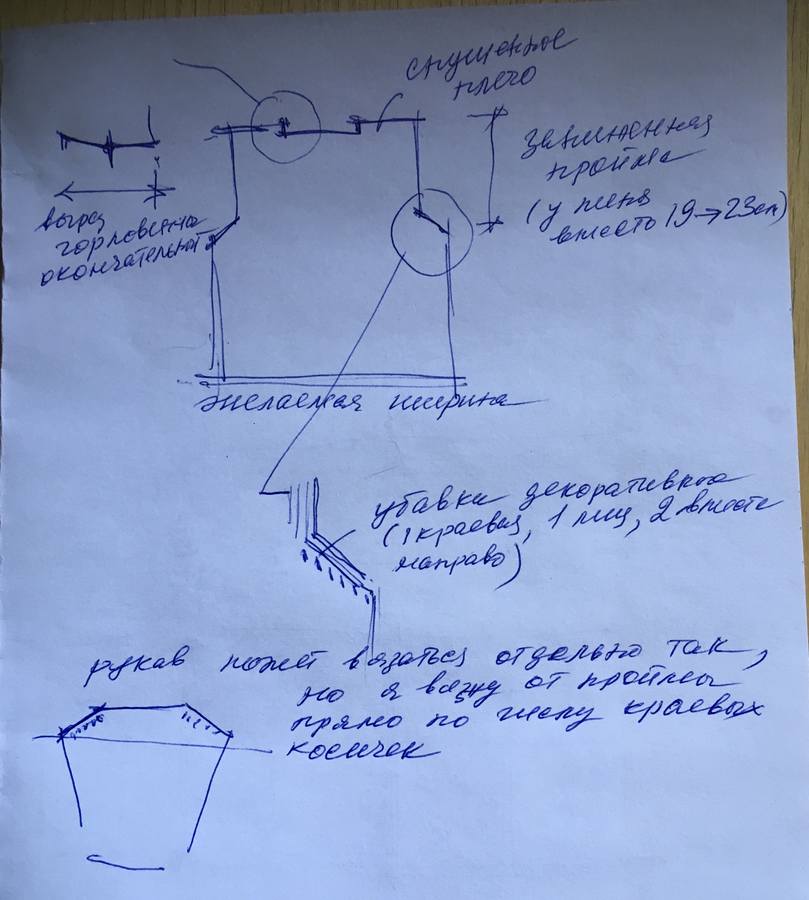 спущенное
плечо
заниженная
пройма
(у меня
вместо 19→23см)
вырез
горловины
окончательной
желаемая ширина
убавки декоративные
(1 краевая, 1 лиц, 2 вместе
направо)
рукав может вязаться отдельно так,
но я вяжу от проймы
прямо по числу краевых
косичек